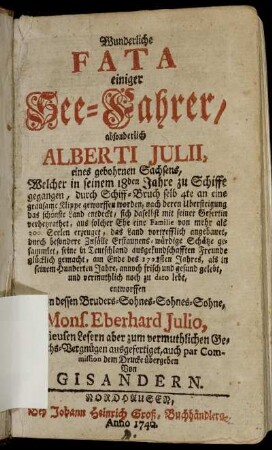 Wunderliche
FATA
einiger
See-Fahrer,
absonderlich
ALBERTI JULII,
eines gebohrnen Sachsens,
Welcher in seinem 18den Jahre zu Schiffe
gegangen, durch Schiff-Bruch selb 4te an eine
grausame Klippe geworffen worden, nach deren Übersteigung
das schönste Land entdeckt, sich daselbst mit seiner Gefertin
verheyrathet, aus solcher Ehe eine Familie von mehr als
300. Seelen erzeuget, das Land vortrefflich angebauet,
durch besondere Zufälle Erstaunens-würdige Schätze ge-
sammlet, seine in Teutschland ausgekundschafften Freunde
glücklich gemacht, am Ende des 1728sten Jahres, als in
seinem Hunderten Jahre, annoch frisch und gesund gelebt,
und vermuthlich noch zu dato lebt,
entworffen
dessen Bruders-Sohnes-Sohnes-Sohne,
Mons. Eberhard Julio,
Lesern aber zum vermuthlichen Ge-
-Vergnügen ausgefertiget, auch par Com-
mission dem Drucke übergeben
Von
GISANDERN.
NORDHAUSEN,
Bey Johann Heinrich Groß, Buchhändlern.
Anno 1740.